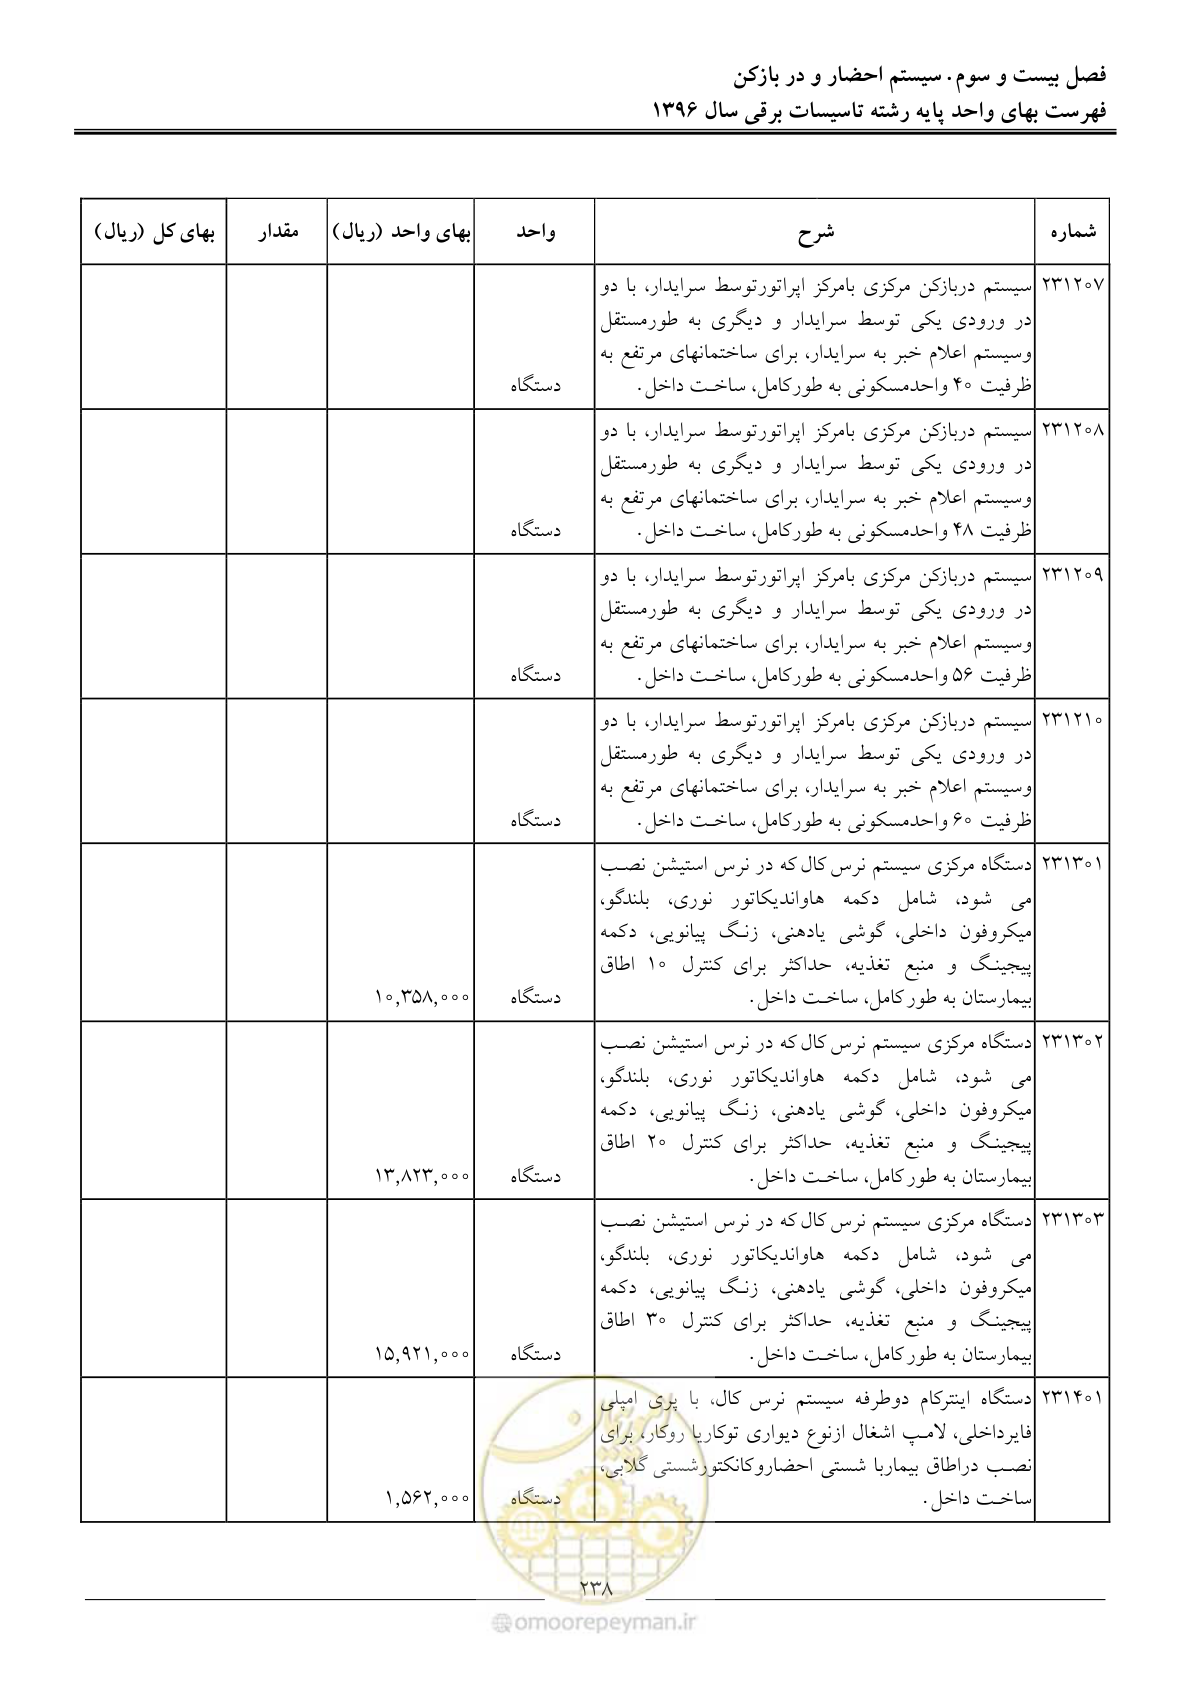 فصل بیست و سوم. سیستم احضار و در بازکن
فهرست بهای واحد پایه رشته تاسیسات برقی سال ۱۳۹۶
شماره شرح واحد بهای واحد (ریال) مقدار بهای کل (ریال)
۲۳۱۲۰۷ سیستم دربازکن مرکزی بامرکز اپراتورتوسط سرایدار، با دو
در ورودی یکی توسط سرایدار و دیگری به طورمستقل
وسیستم اعلام خبر به سرایدار، برای ساختمانهای مرتفع به
ظرفیت ۴۰ واحدمسکونی به طورکامل، ساخت داخل. دستگاه
۲۳۱۲۰۸ سیستم دربازکن مرکزی بامرکز اپراتورتوسط سرایدار، با دو
در ورودی یکی توسط سرایدار و دیگری به طورمستقل
وسیستم اعلام خبر به سرایدار، برای ساختمانهای مرتفع به
ظرفیت ۴۸ واحدمسکونی به طورکامل، ساخت داخل. دستگاه
۲۳۱۲۰۹ سیستم دربازکن مرکزی بامرکز اپراتورتوسط سرایدار، با دو
در ورودی یکی توسط سرایدار و دیگری به طورمستقل
وسیستم اعلام خبر به سرایدار، برای ساختمانهای مرتفع به
ظرفیت ۵۶ واحدمسکونی به طورکامل، ساخت داخل. دستگاه
۲۳۱۲۱۰ سیستم دربازکن مرکزی بامرکز اپراتورتوسط سرایدار، با دو
در ورودی یکی توسط سرایدار و دیگری به طورمستقل
وسیستم اعلام خبر به سرایدار، برای ساختمانهای مرتفع به
ظرفیت ۶۰ واحدمسکونی به طورکامل، ساخت داخل. دستگاه
۲۳۱۳۰۱ دستگاه مرکزی سیستم نرس کال که در نرس استیشن نصب
می شود، شامل دکمه هاواندیکاتور نوری، بلندگو،
میکروفون داخلی، گوشی یادهنی، زنگ پیانویی، دکمه
پیجینگ و منبع تغذیه، حداکثر برای کنترل ۱۰ اطاق
بیمارستان به طورکامل، ساخت داخل. دستگاه ۱۰,۳۵۸,۰۰۰
۲۳۱۳۰۲ دستگاه مرکزی سیستم نرس کال که در نرس استیشن نصب
می شود، شامل دکمه هاواندیکاتور نوری، بلندگو،
میکروفون داخلی، گوشی یادهنی، زنگ پیانویی، دکمه
پیجینگ و منبع تغذیه، حداکثر برای کنترل ۲۰ اطاق
بیمارستان به طورکامل، ساخت داخل. دستگاه ۱۳,۸۲۳,۰۰۰
۲۳۱۳۰۳ دستگاه مرکزی سیستم نرس کال که در نرس استیشن نصب
می شود، شامل دکمه هاواندیکاتور نوری، بلندگو،
میکروفون داخلی، گوشی یادهنی، زنگ پیانویی، دکمه
پیجینگ و منبع تغذیه، حداکثر برای کنترل ۳۰ اطاق
بیمارستان به طورکامل، ساخت داخل. دستگاه ۱۵,۹۲۱,۰۰۰
۲۳۱۴۰۱ دستگاه اینترکام دوطرفه سیستم نرس کال، با پری امپلی
فایرداخلی، لامپ اشغال ازنوع دیواری توکاریا روکار، برای
نصب دراطاق بیماربا شستی احضاروکانکتورشستی گلابی،
ساخت داخل. دستگاه ۱,۵۶۲,۰۰۰
امور پیمان
۲۳۸
omoorepeyman.ir